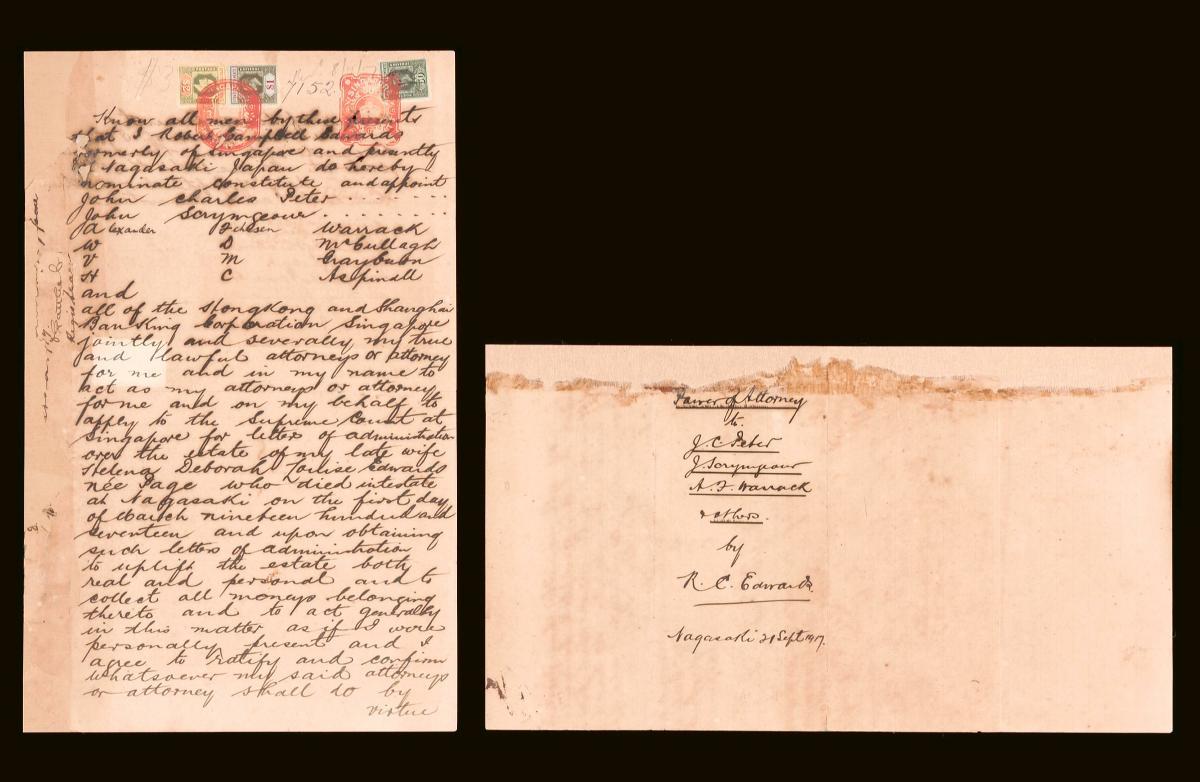 7152
Know all men by these presents
that I Robert Campbell Edwards
formerly of Singapore and presently
Nagasaki Japan do hereby
nominate constitute and appoint
John Charles Peter . . . . . . .
John Scrymgeour . . . . . . . .
Alexander Warrack
W D McCullagh
V M Grayburn
H C Aspinall
and
all of the HongKong and Shanghai
Banking Corporation Singapore
jointly and severally my true
and lawful attorneys or attorney
for me and in my name to
act as my attorneys or attorney
for me and on my behalf to
apply to the Supreme Court at
Singapore for letters of administration
over the estate of my late wife
Helena Deborah Louise Edwards
née Page who died intestate
at Nagasaki on the first day
of March nineteen hundred and
seventeen and upon obtaining
such letters of administration
to uplift the estate both
real and personal and to
collect all moneys belonging
thereto and to act generally
in this matter as if I were
personally present and I
agree to ratify and confirm
whatsoever my said attorneys
or attorney shall do by
virtue
Power of Attorney
to
J. C. Peter
J. Scrymgeour
A. F. Warrack
& others.
by
R. C. Edwards.
Nagasaki 21 Sept 1917.